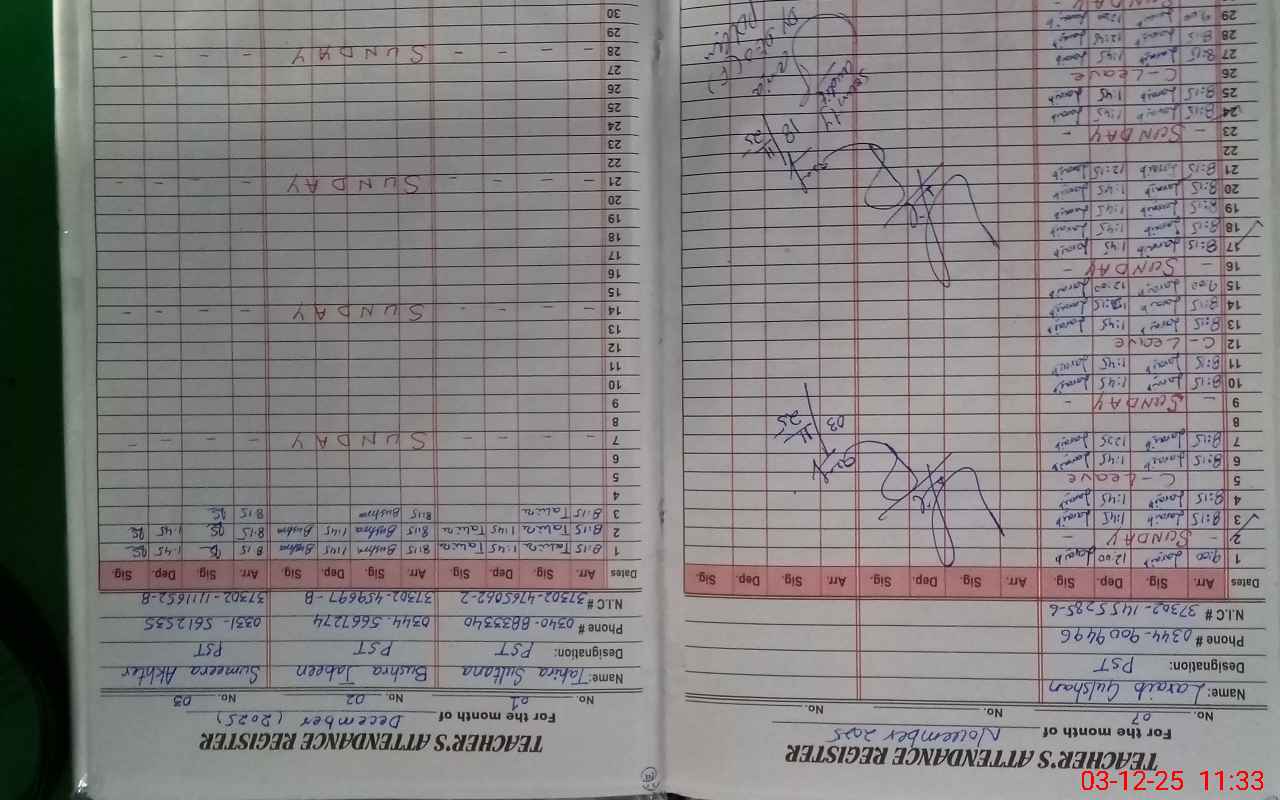 TEACHER'S ATTENDANCE REGISTER
For the month of November 2025
No. 07 No. No.
Name: Laraib Gulshan
Designation: PST
Phone # 0344-9009496
N.I.C # 37302-1455285-6
Dates Arr. Sig. Dep. Sig. Arr. Sig. Dep. Sig. Arr. Sig. Dep. Sig.
1 9:00 Laraib 12:00 Laraib
2 - SUNDAY -
3 8:15 Laraib 1:45 Laraib
4 8:15 Laraib 1:45 Laraib
5 C-Leave
6 8:15 Laraib 1:45 Laraib
7 8:15 Laraib Laraib
8
9 - SUNDAY -
10 8:15 Laraib 1:45 Laraib
11 8:15 Laraib 1:45 Laraib
12 C-Leave
13 8:15 Laraib 1:45 Laraib
14 8:15 Laraib 12:15 Laraib
15 9:00 Laraib 12:00 Laraib
16 - SUNDAY -
17 8:15 Laraib 1:45 Laraib
18 8:15 Laraib 1:45 Laraib
19 8:15 Laraib 1:45 Laraib
20 8:15 Laraib 1:45 Laraib
21 8:15 Laraib 12:15 Laraib
22
23 - SUNDAY -
24 8:15 Laraib 1:45 Laraib
25 8:15 Laraib 1:45 Laraib
26 C-Leave
27 8:15 Laraib 1:45 Laraib
28 8:15 Laraib 12:45 Laraib
29 9:00 Laraib 12:00 Laraib
SUNDAY
03
11
25
18
11
25
TEACHER'S ATTENDANCE REGISTER
For the month of December (2025)
No. 01 No. 02 No. 03
Name: Tahira Sultana Bushra Jabeen Sumeera Akhter
Designation: PST PST PST
Phone # 0340-8833340 0344-5667274 0331-5612535
N.I.C # 37302-4765062-2 37302-459697-8 37302-1111652-8
Dates Arr. Sig. Dep. Sig. Arr. Sig. Dep. Sig. Arr. Sig. Dep. Sig.
1 8:15 1:45 8:15 Bushra 1:45 Bushra 8:15 1:45
2 8:15 1:45 8:15 Bushra 1:45 Bushra 8:15 1:45
3 8:15 8:15 Bushra 8:15
4
5
6
7 - - - - SUNDAY - - - -
8
9
10
11
12
13
14 - - - - SUNDAY - - - -
15
16
17
18
19
20
21 - - - - SUNDAY - - - -
22
23
24
25
26
27
28 - - - - SUNDAY - - - -
29
30
03-12-25 11:33